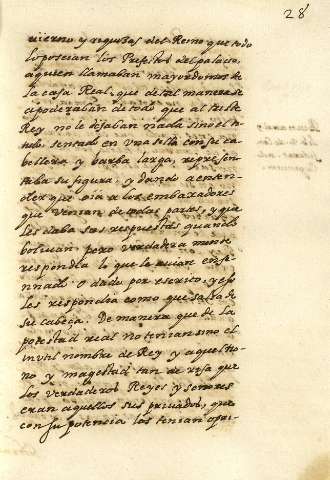 28
uierno y riquezas del Reino que todo
lo poseian los Prefectos del palacio,
a quien llamaban mayordomos de
la casa Real, que de tal manera se
apoderaban de todo que al triste
Rey no le dejaban nada sino el ti-
tulo, sentado en una silla con su ca-
bellera y barba larga, represen-
taba su figura, y dando a enten-
der que oia a los embaxadores
que venian de todas partes, y que
les daba sus respuestas quando
bolvian pero verdadera mente
respondia lo que le avian ense-
ñado o dado por escrito, y eso
les respondia como que salia de
su cabeça. De manera que de la
potestad real no tenian sino el
inutil nombre de Rey y aquel tro-
no y magestad tan de risa que
los verdaderos Reyes y señores
eran aquellos sus privados, que
con su potencia los tenian opri-